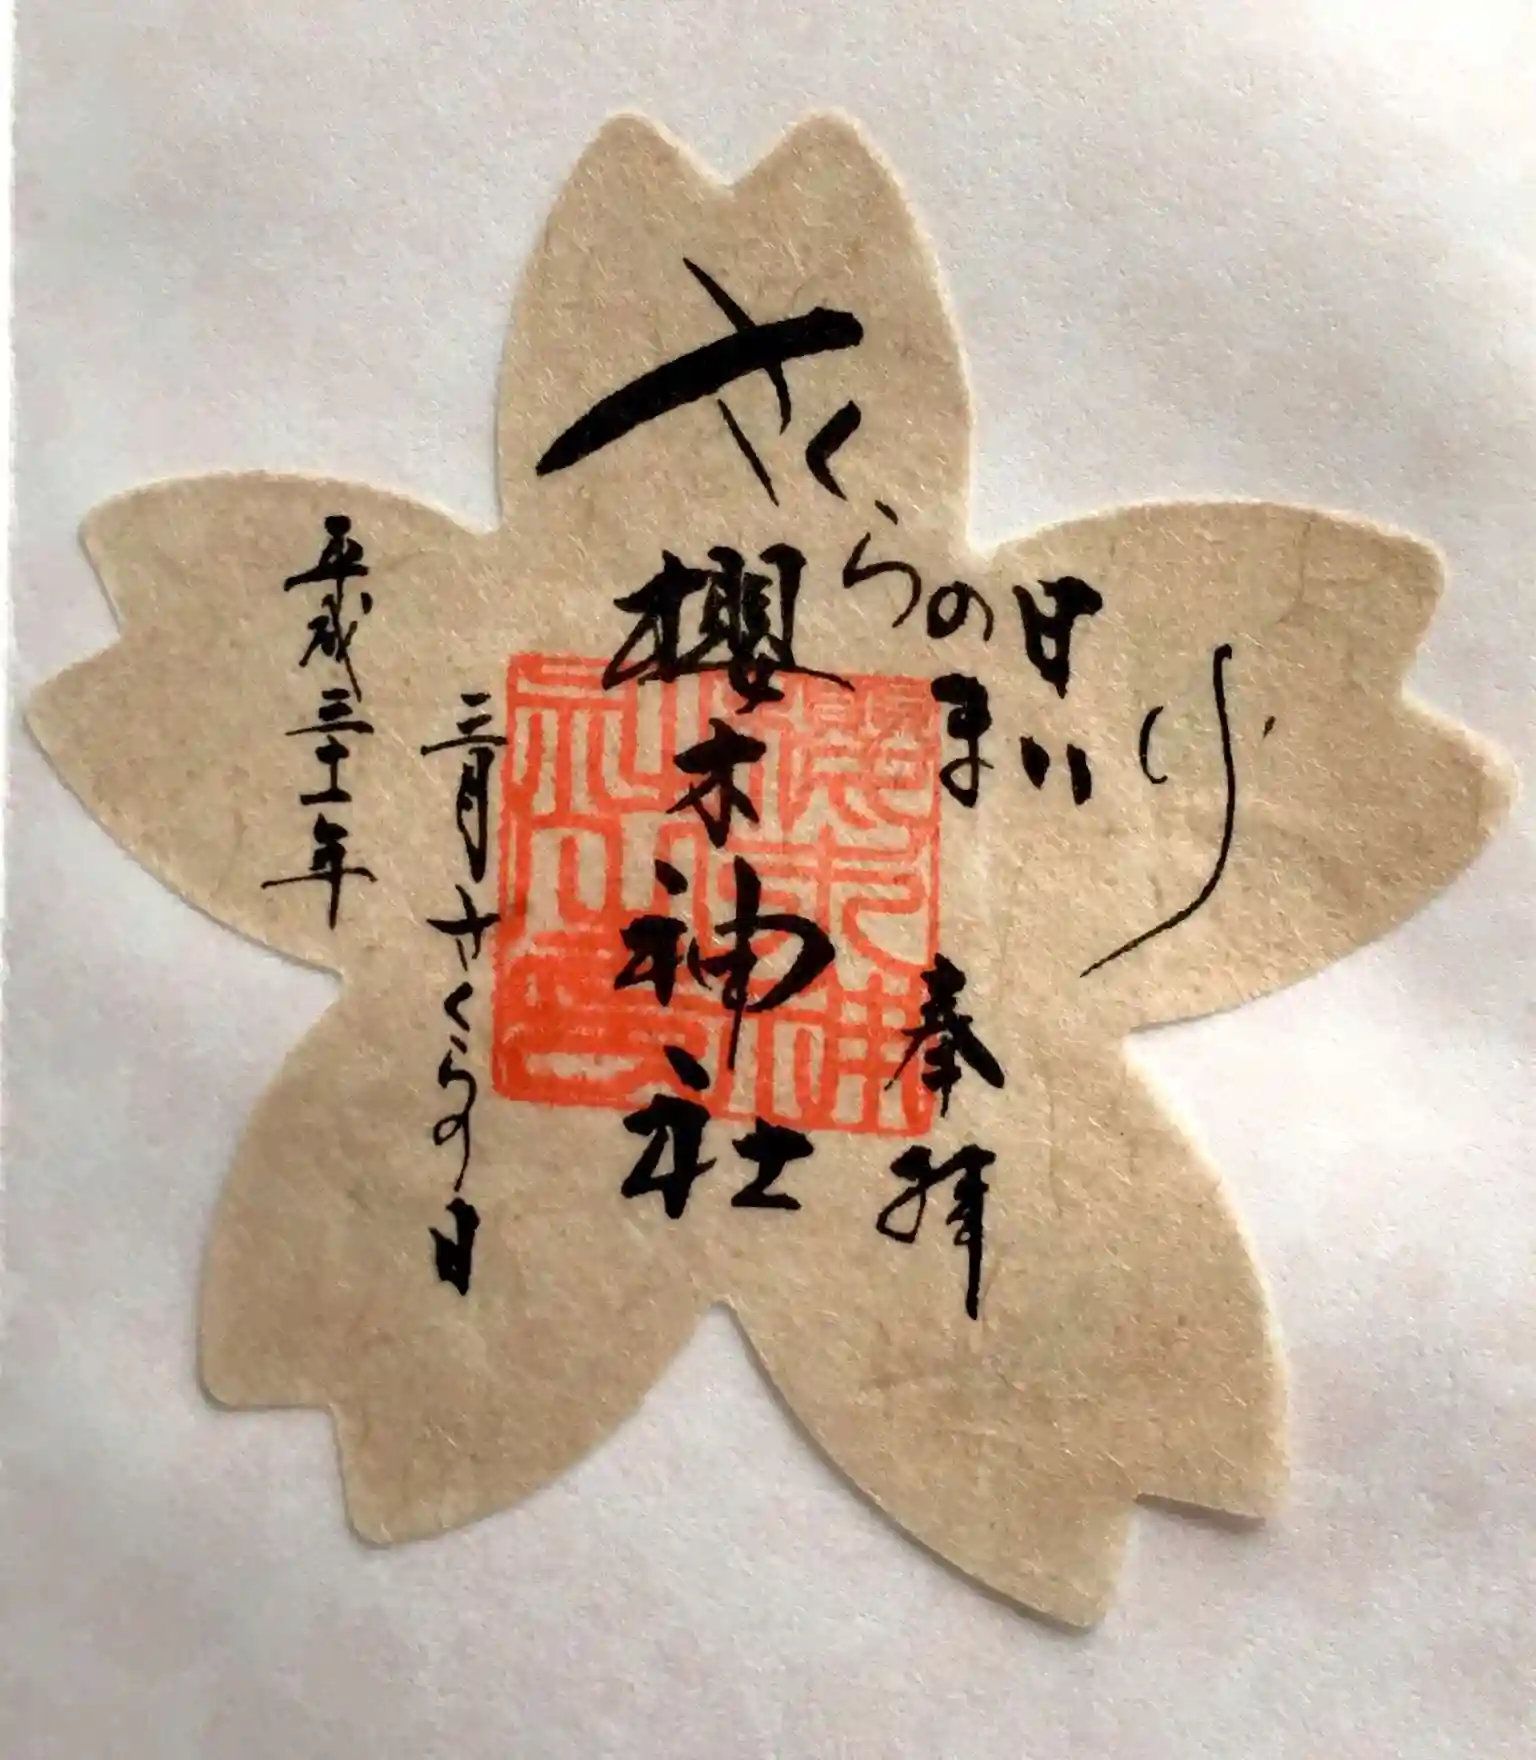 さくらの日まいり
奉拝
櫻木神社
平成三十一年
三月さくらの日
櫻木神
社之印